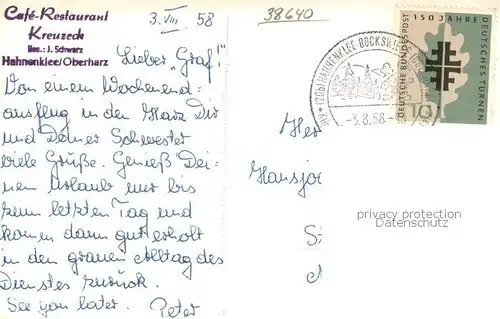 Café-Restaurant
Kreuzeck
Bes.: J. Schwarz
Hahnenklee/Oberharz
3. VIII. 58
38640
Lieber „Graf"!
Von einem Wochenend-
ausflug in den Harz Dir
und Deiner Schwester
viele Grüße. Genieß Dei-
nen Urlaub nur bis
zum letzten Tag und
komm dann gut erholt
in den grauen Alltag des
Dienstes zurück.
See you later. Peter
HAHNENKLEE BOCKSWIESE
-3.8.58-
DEUTSCHE BUNDESPOST
150 JAHRE
DEUTSCHES TURNEN
10
Her
Hansjo
privacy protection
Datenschutz